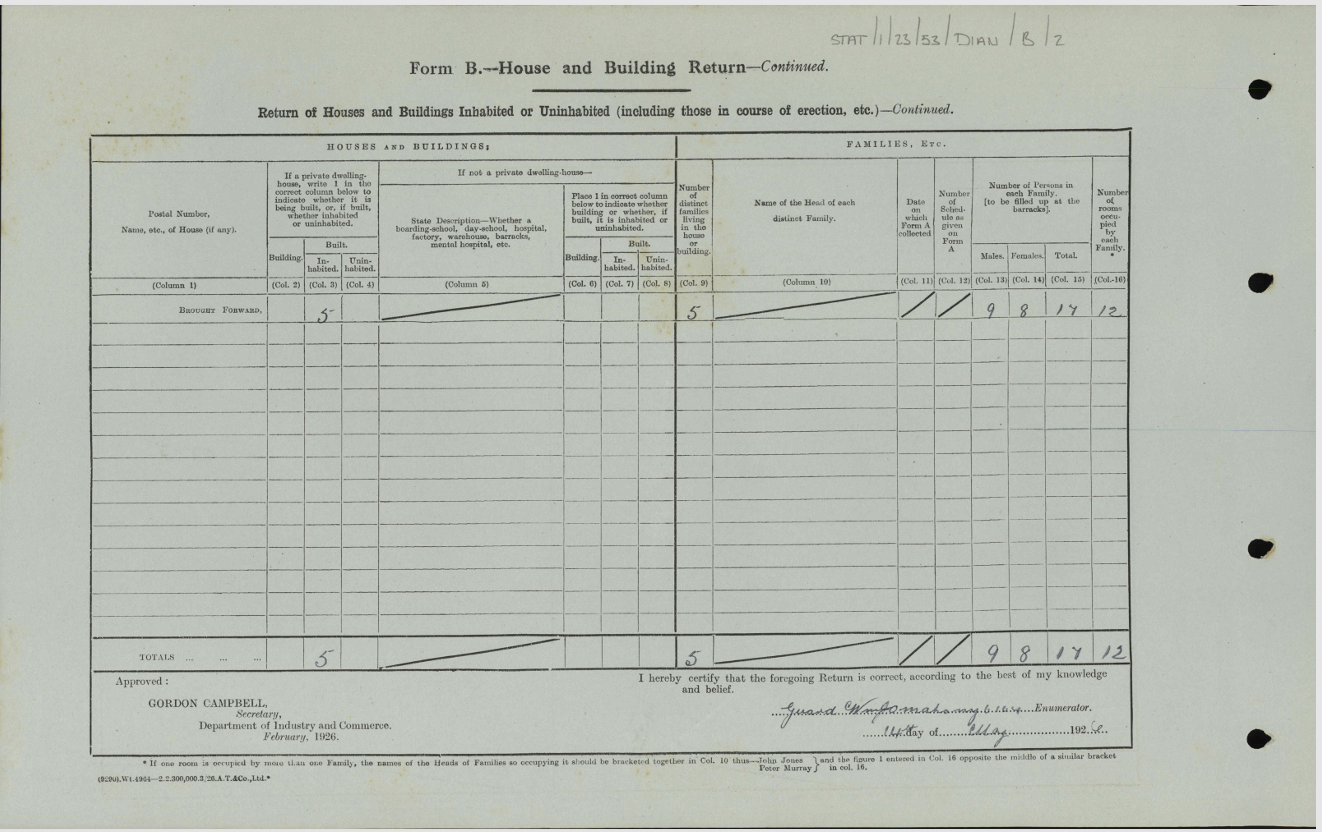 STAT/1/23/53/DIAN/B/2
Form B.—House and Building Return—Continued.
Return of Houses and Buildings Inhabited or Uninhabited (including those in course of erection, etc.)—Continued.
HOUSES AND BUILDINGS:
FAMILIES, ETC.
Postal Number,
Name, etc., of House (if any).
If a private dwelling-
house, write 1 in the
correct column below to
indicate whether it is
being built, or, if built,
whether inhabited
or uninhabited.
Building.
Built.
In-
habited.
Unin-
habited.
If not a private dwelling-house—
State Description—Whether a
boarding-school, day-school, hospital,
factory, warehouse, barracks,
mental hospital, etc.
Place 1 in correct column
below to indicate whether
building or whether, if
built, it is inhabited or
uninhabited.
Building.
Built.
In-
habited.
Unin-
habited.
Number
of
distinct
families
living
in the
house
or
building.
Name of the Head of each
distinct Family.
Date
on
which
Form A
collected
Number
of
Sched-
ule as
given
on
Form
A
Number of Persons in
each Family.
[to be filled up at the
barracks].
Males. Females. Total.
Number
of
rooms
occu-
pied
by
each
Family.
*
(Column 1) (Col. 2) (Col. 3) (Col. 4) (Column 5) (Col. 6) (Col. 7) (Col. 8) (Col. 9) (Column 10) (Col. 11) (Col. 12) (Col. 13) (Col. 14) (Col. 15) (Col. 16)
BROUGHT FORWARD. 5 5 9 8 17 12
TOTALS ... ... ... 5 5 9 8 17 12
Approved:
GORDON CAMPBELL,
Secretary,
Department of Industry and Commerce.
February, 1926.
I hereby certify that the foregoing Return is correct, according to the best of my knowledge
and belief.
Guard Enumerator.
day of May 1926.
* If one room is occupied by more than one Family, the names of the Heads of Families so occupying it should be bracketed together in Col. 10 thus—John Jones } and the figure 1 entered in Col. 16 opposite the middle of a similar bracket
Peter Murray } in col. 16.
(9290).Wt.4964—2.2.300,000.3/26.A.T.&Co.,Ltd.*